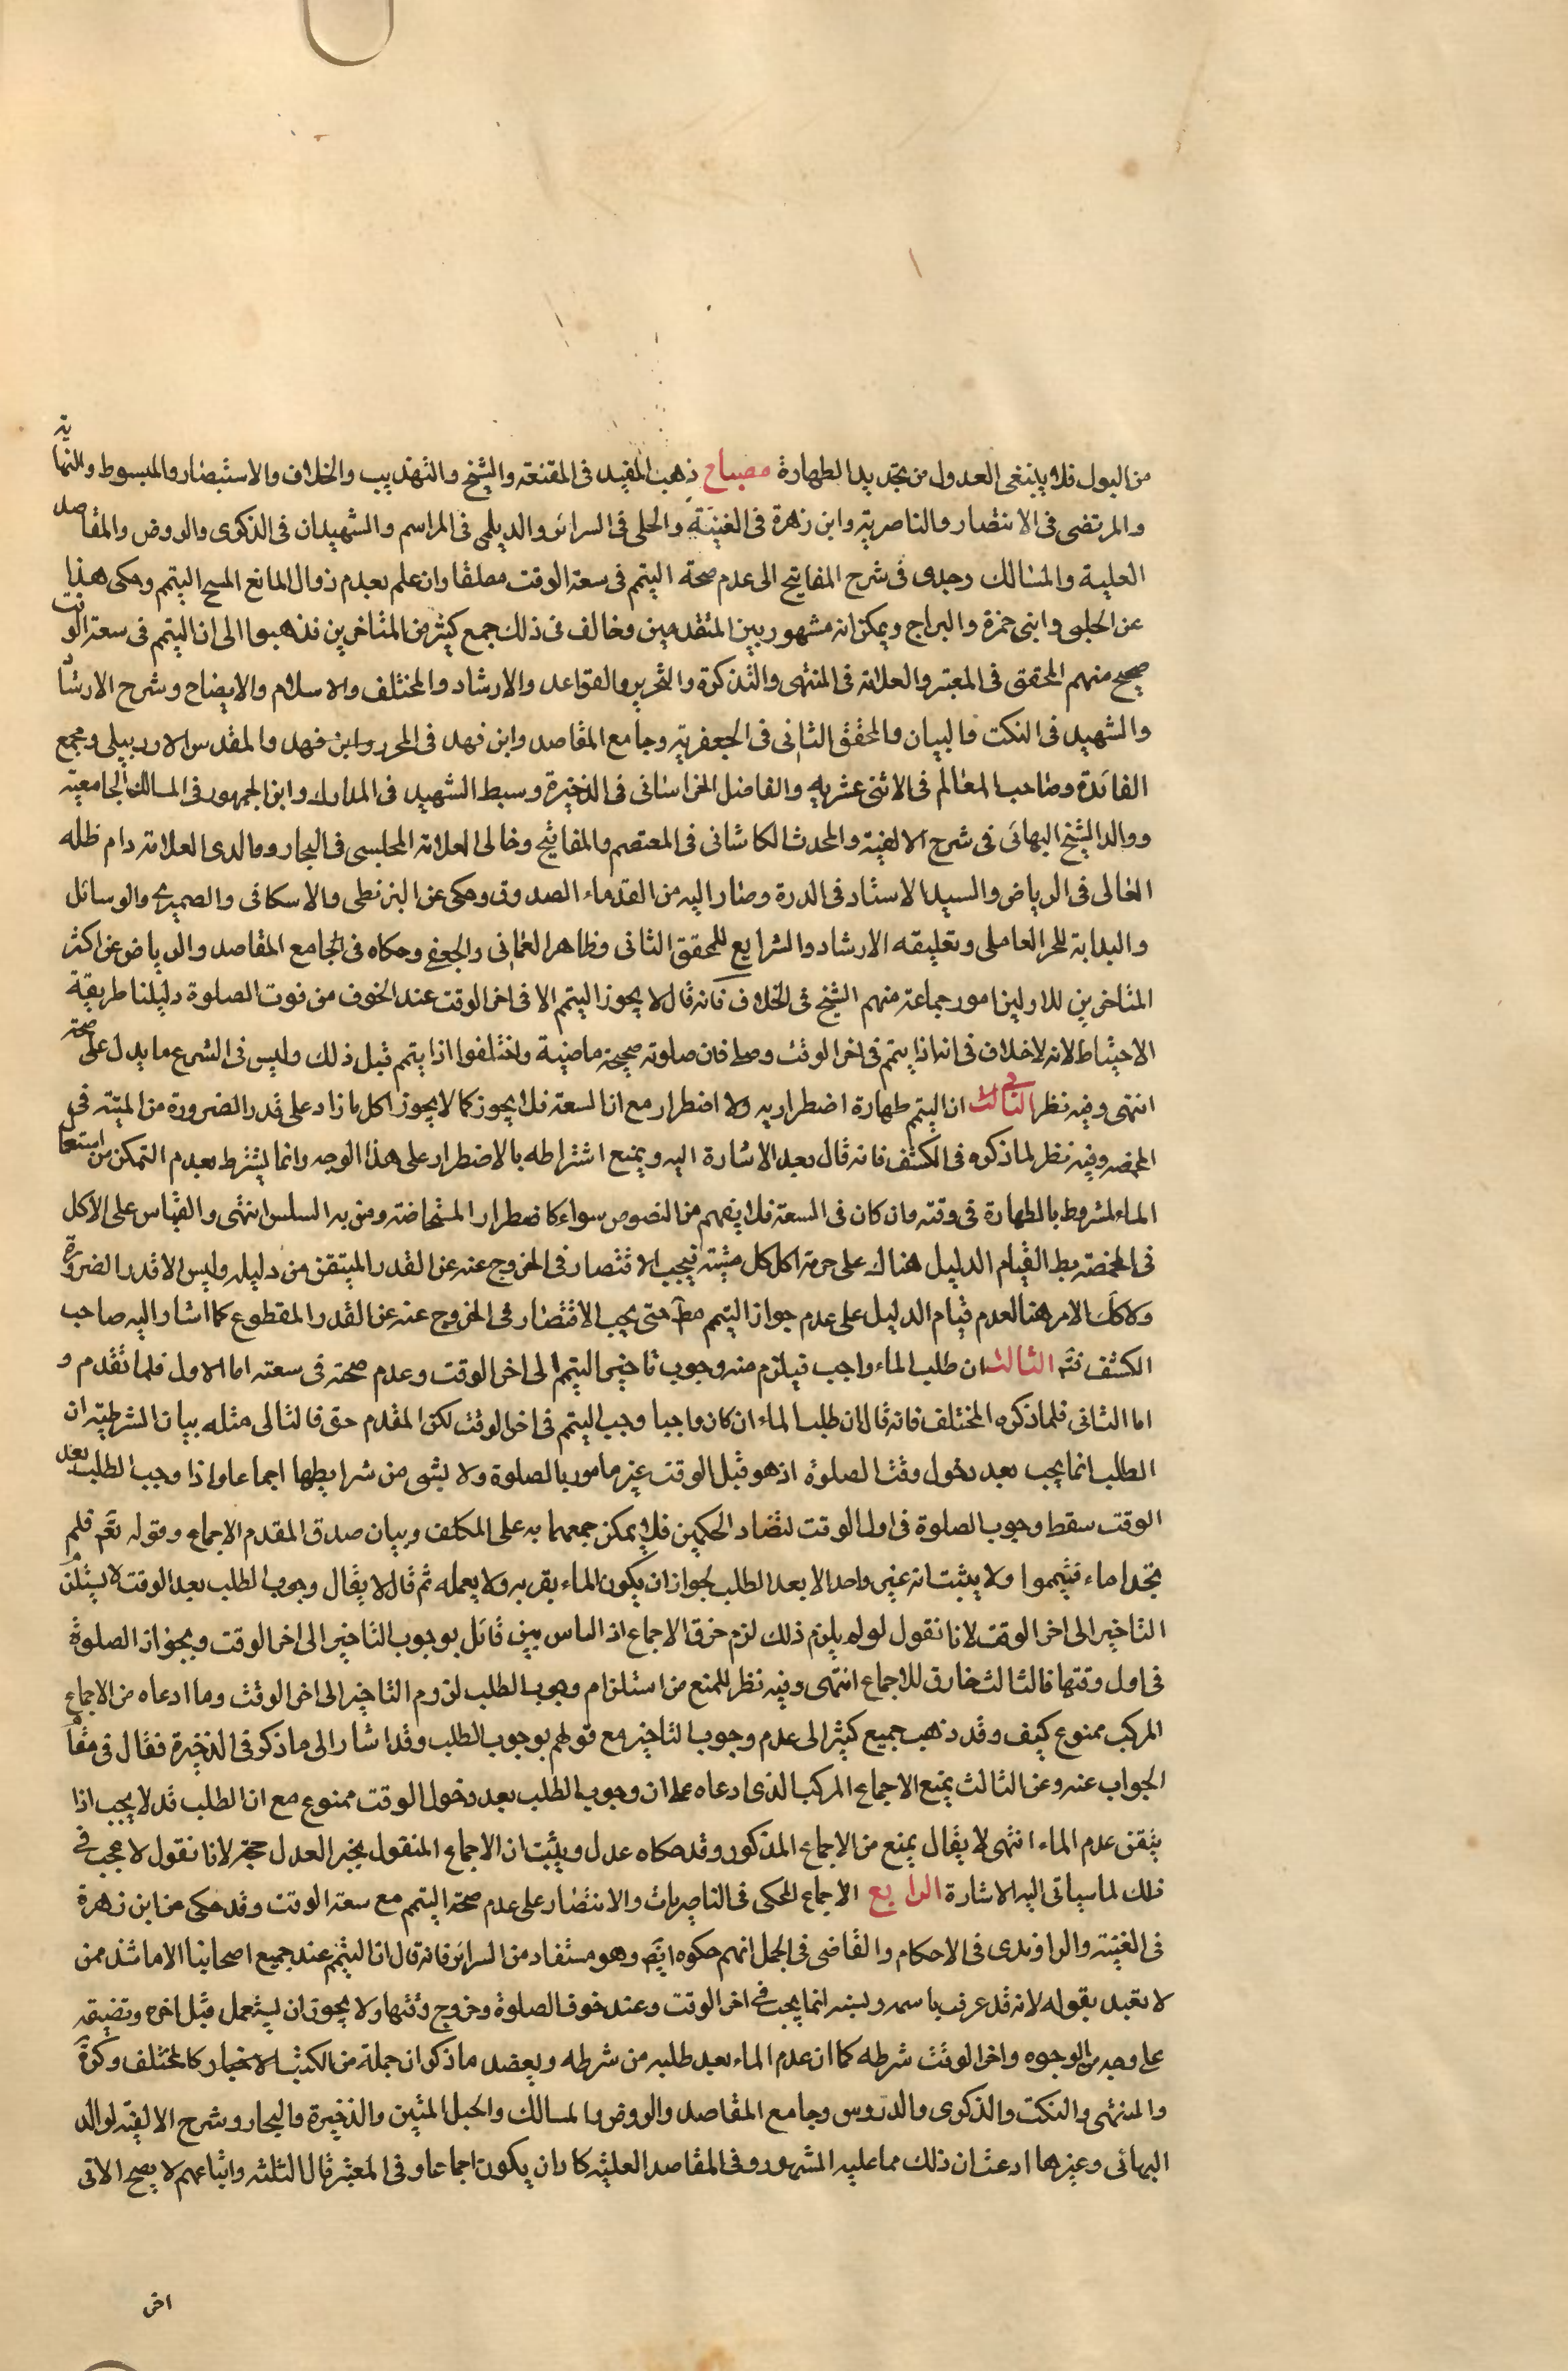 من البول فلا ينبغى العدول من تجديد الطهارة مصباح ذهب المفيد فى المقنعة والشيخ والتهذيب والخلاف والاستبصار والمبسوط والنهاية
والمرتضى فى الانتصار والناصرية وابن زهرة فى الغنية والحلى فى السرائر والديلمى فى المراسم والشهيدان فى الذكرى والروض والمقاصد
العلية والمسالك وجدى فى شرح المفاتيح الى عدم صحة التيمم فى سعة الوقت مطلقا وان علم بعدم زوال المانع المبيح التيمم وحكى هذا
عن الحلبى وابنى حمزة والبراج ويمكن انه مشهور بين المتقدمين وخالف فى ذلك جمع كثير من المتاخرين فذهبوا الى ان التيمم فى سعة الوقت
صحيح منهم المحقق فى المعتبر والعلامة فى المنتهى والتذكرة والتحرير والقواعد والارشاد والمختلف والاسلام والايضاح وشرح الارشاد
والشهيد فى النكت والبيان والمحقق الثانى فى الجعفرية وجامع المقاصد وابن فهد فى المحرر وابن فهد والمقدس الاردبيلى ومجمع
الفائدة وصاحب المعالم فى الاثنى عشريه والفاضل الخراسانى فى الذخيرة وسبط الشهيد فى المدارك وابن الجمهور فى المسالك الجامعية
ووالد الشيخ البهائى فى شرح الالفية والمحدث الكاشانى فى المعتصم والمفاتيح وخالى العلامة المجلسى فى البحار ووالدى العلامة دام ظله
العالى فى الرياض والسيد الاستاد فى الدرة وصار اليه من القدماء الصدوق وحكى عن البزنطى والاسكافى والصيمرى والوسائل
والبداية للحر العاملى وتعليقه الارشاد والشرايع للمحقق الثانى وظاهر العمانى والجعفى وحكاه فى الجامع المقاصد والرياض عن اكثر
المتاخرين للاولين امور جماعة منهم الشيخ فى الخلاف فانه قال لا يجوز التيمم الا فى اخر الوقت عند الخوف من فوت الصلوة دليلنا طريقة
الاحتياط لانه لا خلاف فى انه اذا تيمم فى اخر الوقت وصلى فان صلوته صحيحة ماضية واختلفوا اذا تيمم قبل ذلك وليس فى الشرع ما يدل على صحته
انتهى وفيه نظر الثانى ان التيمم طهارة اضطراريه ولا اضطرار مع السعة فلا يجوز كما لا يجوز اكل ما زاد على قدر الضرورة من الميتة فى
المخمصه وفيه نظر لما ذكره فى الكشف فانه قال بعد الاشارة اليه ويمنع اشتراطه بالاضطرار على هذا الوجه وانما يشترط بعدم التمكن من استعمال
الماء لمشروط بالطهارة فى وقته وان كان فى السعة فلا يفهم من النصوص سواء كاضطرار المستحاضة ومن به السلس انتهى والقياس على الاكل
فى المخمصة بط لقيام الدليل هناك على حرمة اكل كل ميتة فيجب الاقتصار فى الخروج عنه عن القدر المتيقن من دليله وليس الا قدر الضرورة
ولا كك الامر هنا لعدم قيام الدليل على عدم جواز التيمم مط حتى يجب الاقتصار فى الخروج عنه عن القدر المقطوع كما اشار اليه صاحب
الكشف فتم الثالث ان طلب الماء واجب فيلزم منه وجوب تاخير التيمم الى اخر الوقت وعدم صحته فى سعته اما الاول فلما تقدم و
اما الثانى فلما ذكره المختلف فانه قال ان طلب الماء ان كان واجبا وجب التيمم فى اخر الوقت لكن المقدم حق فالتالى مثله بيان الشرطية ان
الطلب انما يجب بعد دخول وقت الصلوة اذ هو قبل الوقت غير مامور بالصلوة ولا بشى من شرايطها اجماعا واذا وجب الطلب بعد
الوقت سقط وجوب الصلوة فى اول الوقت لتضاد الحكمين فلا يمكن جمعهما به على المكلف وبيان صدق المقدم الاجماع وقوله تعم فلم
تجدوا ماء فتيمموا ولا يثبت انه غير واحد الا بعد الطلب لجواز ان يكون الماء بقربه ولا يعمله ثم قال لا يقال وجوب الطلب بعد الوقت لا يستلزم
التاخير الى اخر الوقت لانا نقول لو لم يلزم ذلك لزم خرق الاجماع اذ الناس بين قائل بوجوب التاخير الى اخر الوقت وبجواز الصلوة
فى اول وقتها فالثالث خارق للاجماع انتهى وفيه نظر للمنع من استلزام وجوب الطلب لزوم التاخير الى اخر الوقت وما ادعاه من الاجماع
المركب ممنوع كيف وقد ذهب جميع كثير الى عدم وجوب التاخير مع قولهم بوجوب الطلب وقد اشار الى ما ذكر فى الذخيرة فقال فى مقام
الجواب عنه وعن الثالث يمنع الاجماع المركب الذى ادعاه على ان وجوب الطلب بعد دخول الوقت ممنوع مع ان الطلب قد لا يجب اذا
يتقن عدم الماء انتهى لا يقال يمنع من الاجماع المذكور وقد حكاه عدل ويثبت ان الاجماع المنقول بخبر العدل حجة لانا نقول لا عجب فى
ذلك لما سياتى اليه الاشارة الرابع الاجماع المحكى فى الناصريات والانتصار على عدم صحة التيمم مع سعة الوقت وقد حكى من ابن زهرة
فى الغنية والراوندى فى الاحكام والقاضى فى الجمل انهم حكوه ايض وهو مستفاد من السرائر فانه قال ان التيمم عند جميع اصحابنا الا ما شذ ممن
لا يعتد بقوله لانه قد عرف باسمه ونسبه انما يجب فى اخر الوقت وعند خوف الصلوة وخروج وقتها ولا يجوز ان يستعمل قبل اخره وتضيقه
على وجه من الوجوه واخر الوقت شرطه كما ان عدم الماء بعد طلبه من شرطه ويعضد ما ذكر ان جملة من الكتب الاخبار كالمختلف وكرة
والمنتهى والنكت والذكرى والدروس وجامع المقاصد والروض والمسالك والحبل المتين والذخيرة والبحار وشرح الالفية لوالد
البهائى وغيرها ادعت ان ذلك مما عليه المشهور وفى المقاصد العلية كاد ان يكون اجماعا وفى المعتبر قال الثلثه واتباعهم لا يصح الا فى
اخر